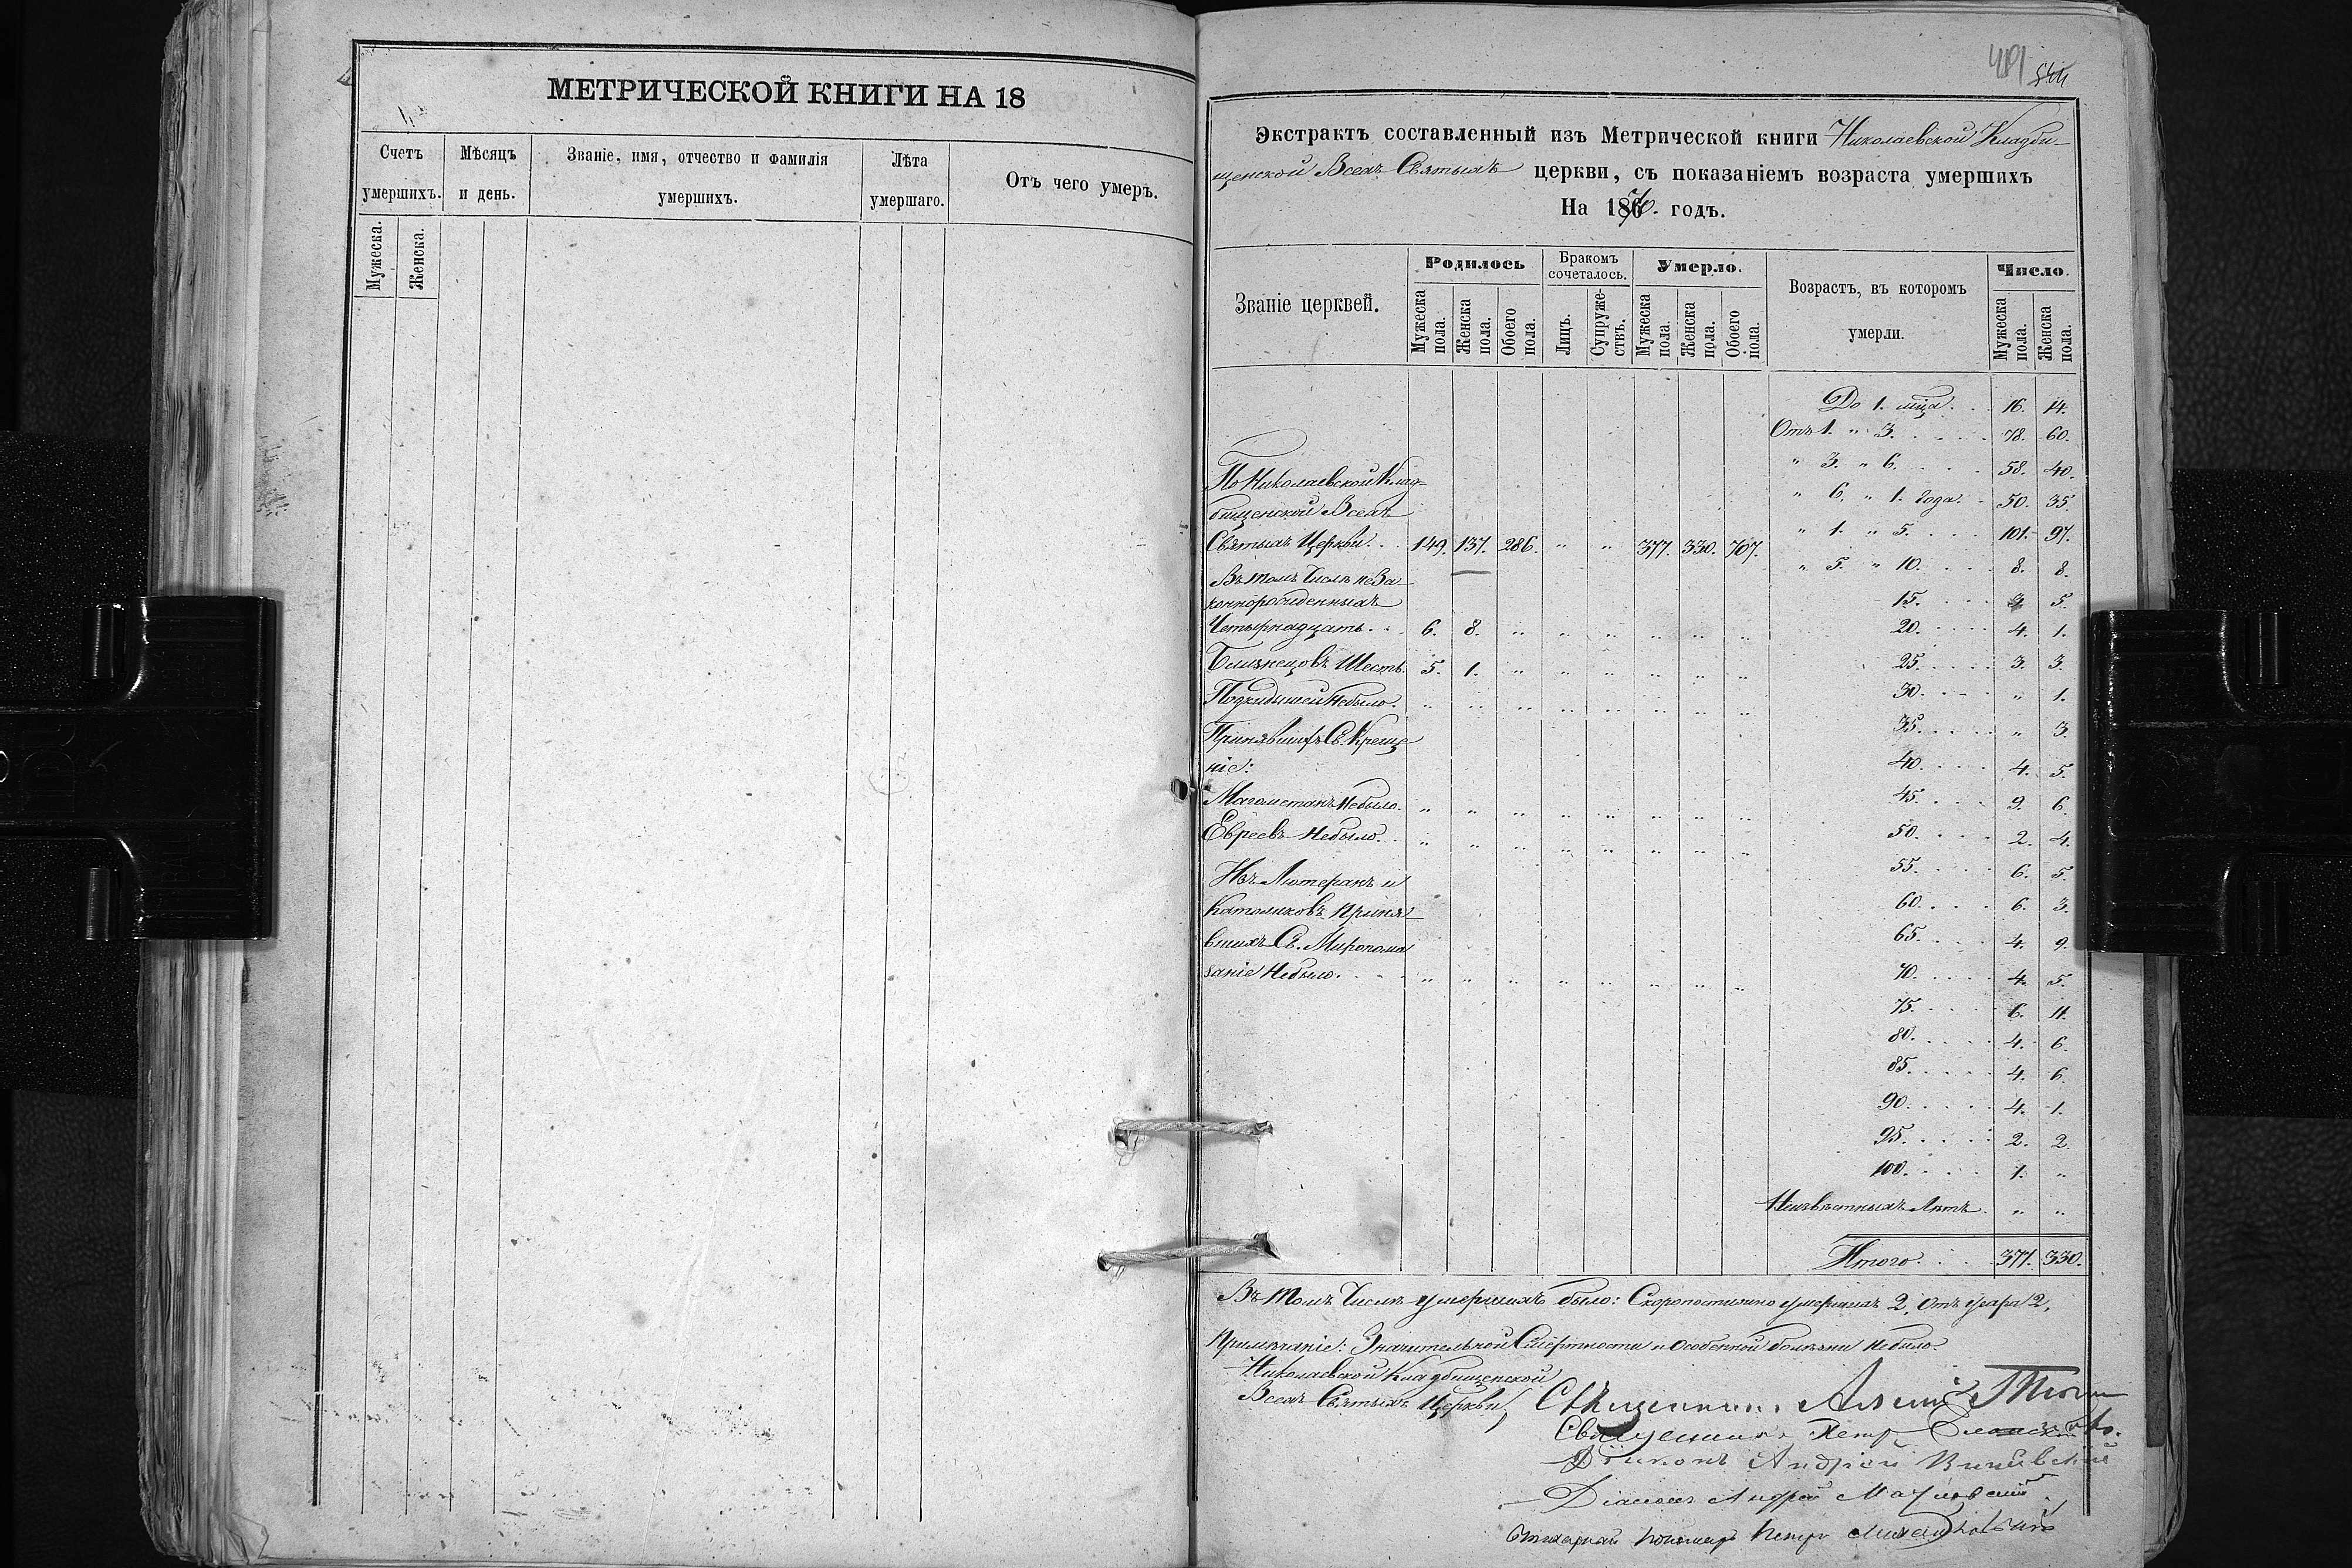 МЕТРИЧЕСКОЙ КНИГИ НА 18
Счетъ умершихъ.
Мѣсяцъ и день.
Званіе, имя, отчество и фамилія умершихъ.
Лѣта умершаго.
Отъ чего умеръ.
Мужеска.
Женска.
491
Экстрактъ составленный изъ Метрической книги Николаевской Кладби-
щенской Всехъ Святыхъ церкви, съ показаніемъ возраста умершихъ
На 1870. годъ.
Званіе церквей.
Родилось
Бракомъ сочеталось.
Умерло.
Возрастъ, въ которомъ умерли.
Число.
Мужеска пола.
Женска пола.
Обоего пола.
Лицъ.
Супружествъ.
Мужеска пола.
Женска пола.
Обоего пола.
Мужеска пола.
Женска пола.
До 1. мца. . . 16. 14.
Отъ 1. " 3. . . . . 78. 60.
" 3. " 6. . . . 58. 40.
По Николаевской Клад-
" 6. " 1. года. . 50. 35.
бищенской Всехъ
" 1. " 5. . . . 101. 97.
Святыхъ Церкви. . . 149. 137. 286. " " 377. 330. 707.
" 5. " 10. . . . 8. 8.
Въ томъ Числѣ неЗа
коннорожденныхъ
15. . . . 5.
Четырнадцать. . . 6. 8. " " " " " "
20. . . . 4. 1.
Близнецовъ Шесть. 5. 1. " " " " " "
25. . . . 3. 3.
Подкидышей Небыло. " " " " " " " "
30. . . . " 1.
Принявшихъ Св. Креще
35. . . . " 3.
ніе:
40. . . . 4. 5.
Магометанъ Небыло. " " " " " " " "
45. . . . 9. 6.
Евреевъ Небыло. . " " " " " " " "
50. . . . 2. 4.
Изъ Лютеранъ и
55. . . . 6. 5.
Католиковъ Приня
60. . . . 6. 3.
вшихъ Св. Миропома
65. . . . 4. 9.
заніе Небыло. . . . " " " " " " " "
70. . . . 4. 5.
75. . . . 6. 11.
80. . . . 4. 6.
85. . . . 4. 6.
90. . . . 4. 1.
95. . . . 2. 2.
100. . . . 1. "
Неизвѣстныхъ Лѣтъ. " "
Итого. . . . 377. 330.
Въ томъ Числѣ умершихъ было: Скоропостижно умершихъ 2, отъ удара 2,
Примѣчаніе: Значительной Смертности и Особенной болѣзни Небыло.
Николаевской Кладбищенской
Всехъ Святыхъ Церкви, Священникъ
Священникъ Петръ
Діаконъ Андрей
Діаконъ Андрей
Петръ